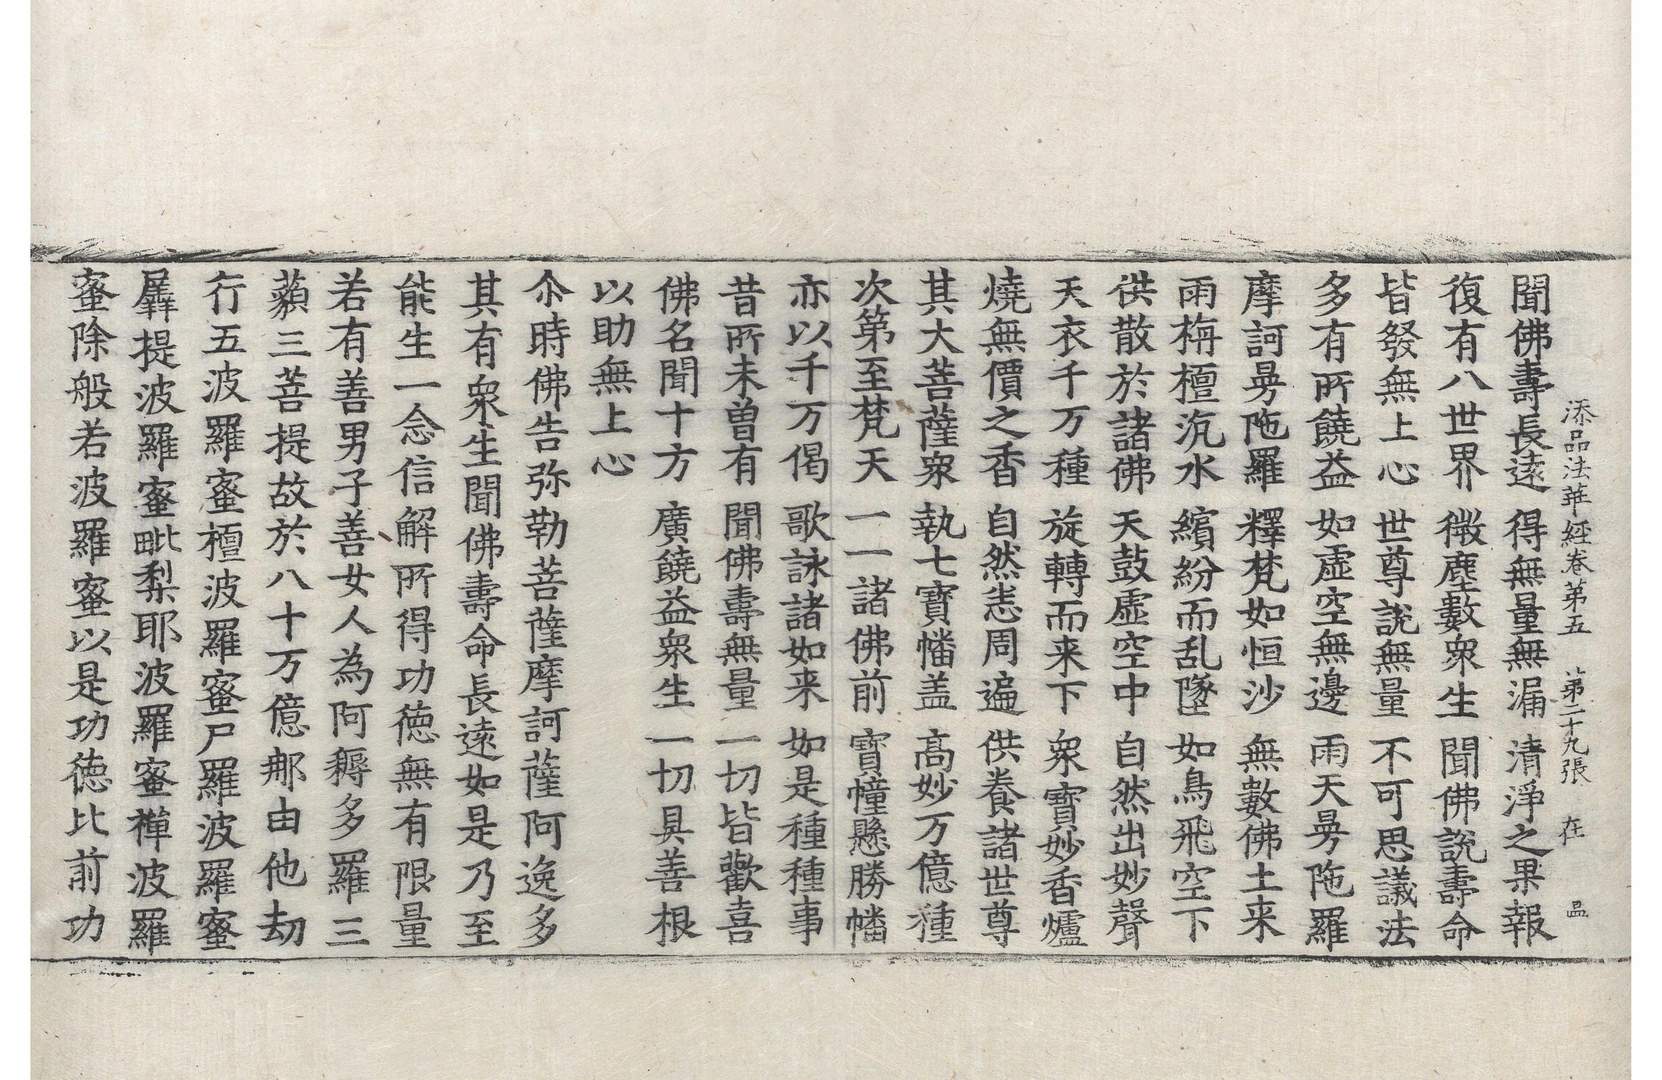 添品法華經卷第五 第二十九張 在 品
聞佛壽長遠 得無量無漏 清淨之果報
復有八世界 微塵數衆生 聞佛說壽命
皆發無上心 世尊說無量 不可思議法
多有所饒益 如虛空無邊 雨天曼陁羅
摩訶曼陁羅 釋梵如恒沙 無數佛土来
雨栴檀沉水 繽紛而乱墜 如鳥飛空下
供散於諸佛 天鼓虛空中 自然出妙聲
天衣千万種 旋轉而来下 衆寶妙香爐
燒無價之香 自然悉周遍 供養諸世尊
其大菩薩衆 執七寶幡盖 高妙万億種
次第至梵天 一一諸佛前 寶幢懸勝幡
亦以千万偈 歌詠諸如来 如是種種事
昔所未曽有 聞佛壽無量 一切皆歡喜
佛名聞十方 廣饒益衆生 一切具善根
以助無上心
尒時佛告弥勒菩薩摩訶薩阿逸多
其有衆生聞佛壽命長遠如是乃至
能生一念信解所得功德無有限量
若有善男子善女人為阿耨多羅三
藐三菩提故於八十万億那由他劫
行五波羅蜜檀波羅蜜尸羅波羅蜜
羼提波羅蜜毗梨耶波羅蜜禪波羅
蜜除般若波羅蜜以是功德比前功